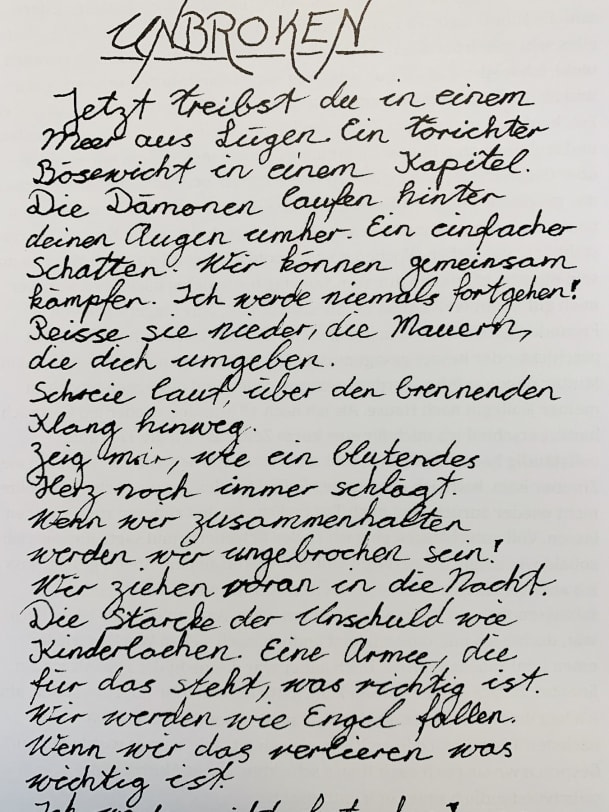 UNBROKEN
Jetzt treibst du in einem
Meer aus Lügen. Ein törichter
Bösewicht in einem Kapitel.
Die Dämonen laufen hinter
deinen Augen umher. Ein einfacher
Schatten. Wir können gemeinsam
kämpfen. Ich werde niemals fortgehen!
Reisse sie nieder, die Mauern,
die dich umgeben.
Schreie laut, über den brennenden
Klang hinweg.
Zeig mir, wie ein blutendes
Herz noch immer schlägt.
Wenn wir zusammenhalten
werden wir ungebrochen sein!
Wir ziehen voran in die Nacht.
Die Stärcke der Unschuld wie
Kinderlachen. Eine Armee, die
für das steht, was richtig ist.
Wir werden wie Engel fallen.
Wenn wir das verlieren was
wichtig ist.
Ich